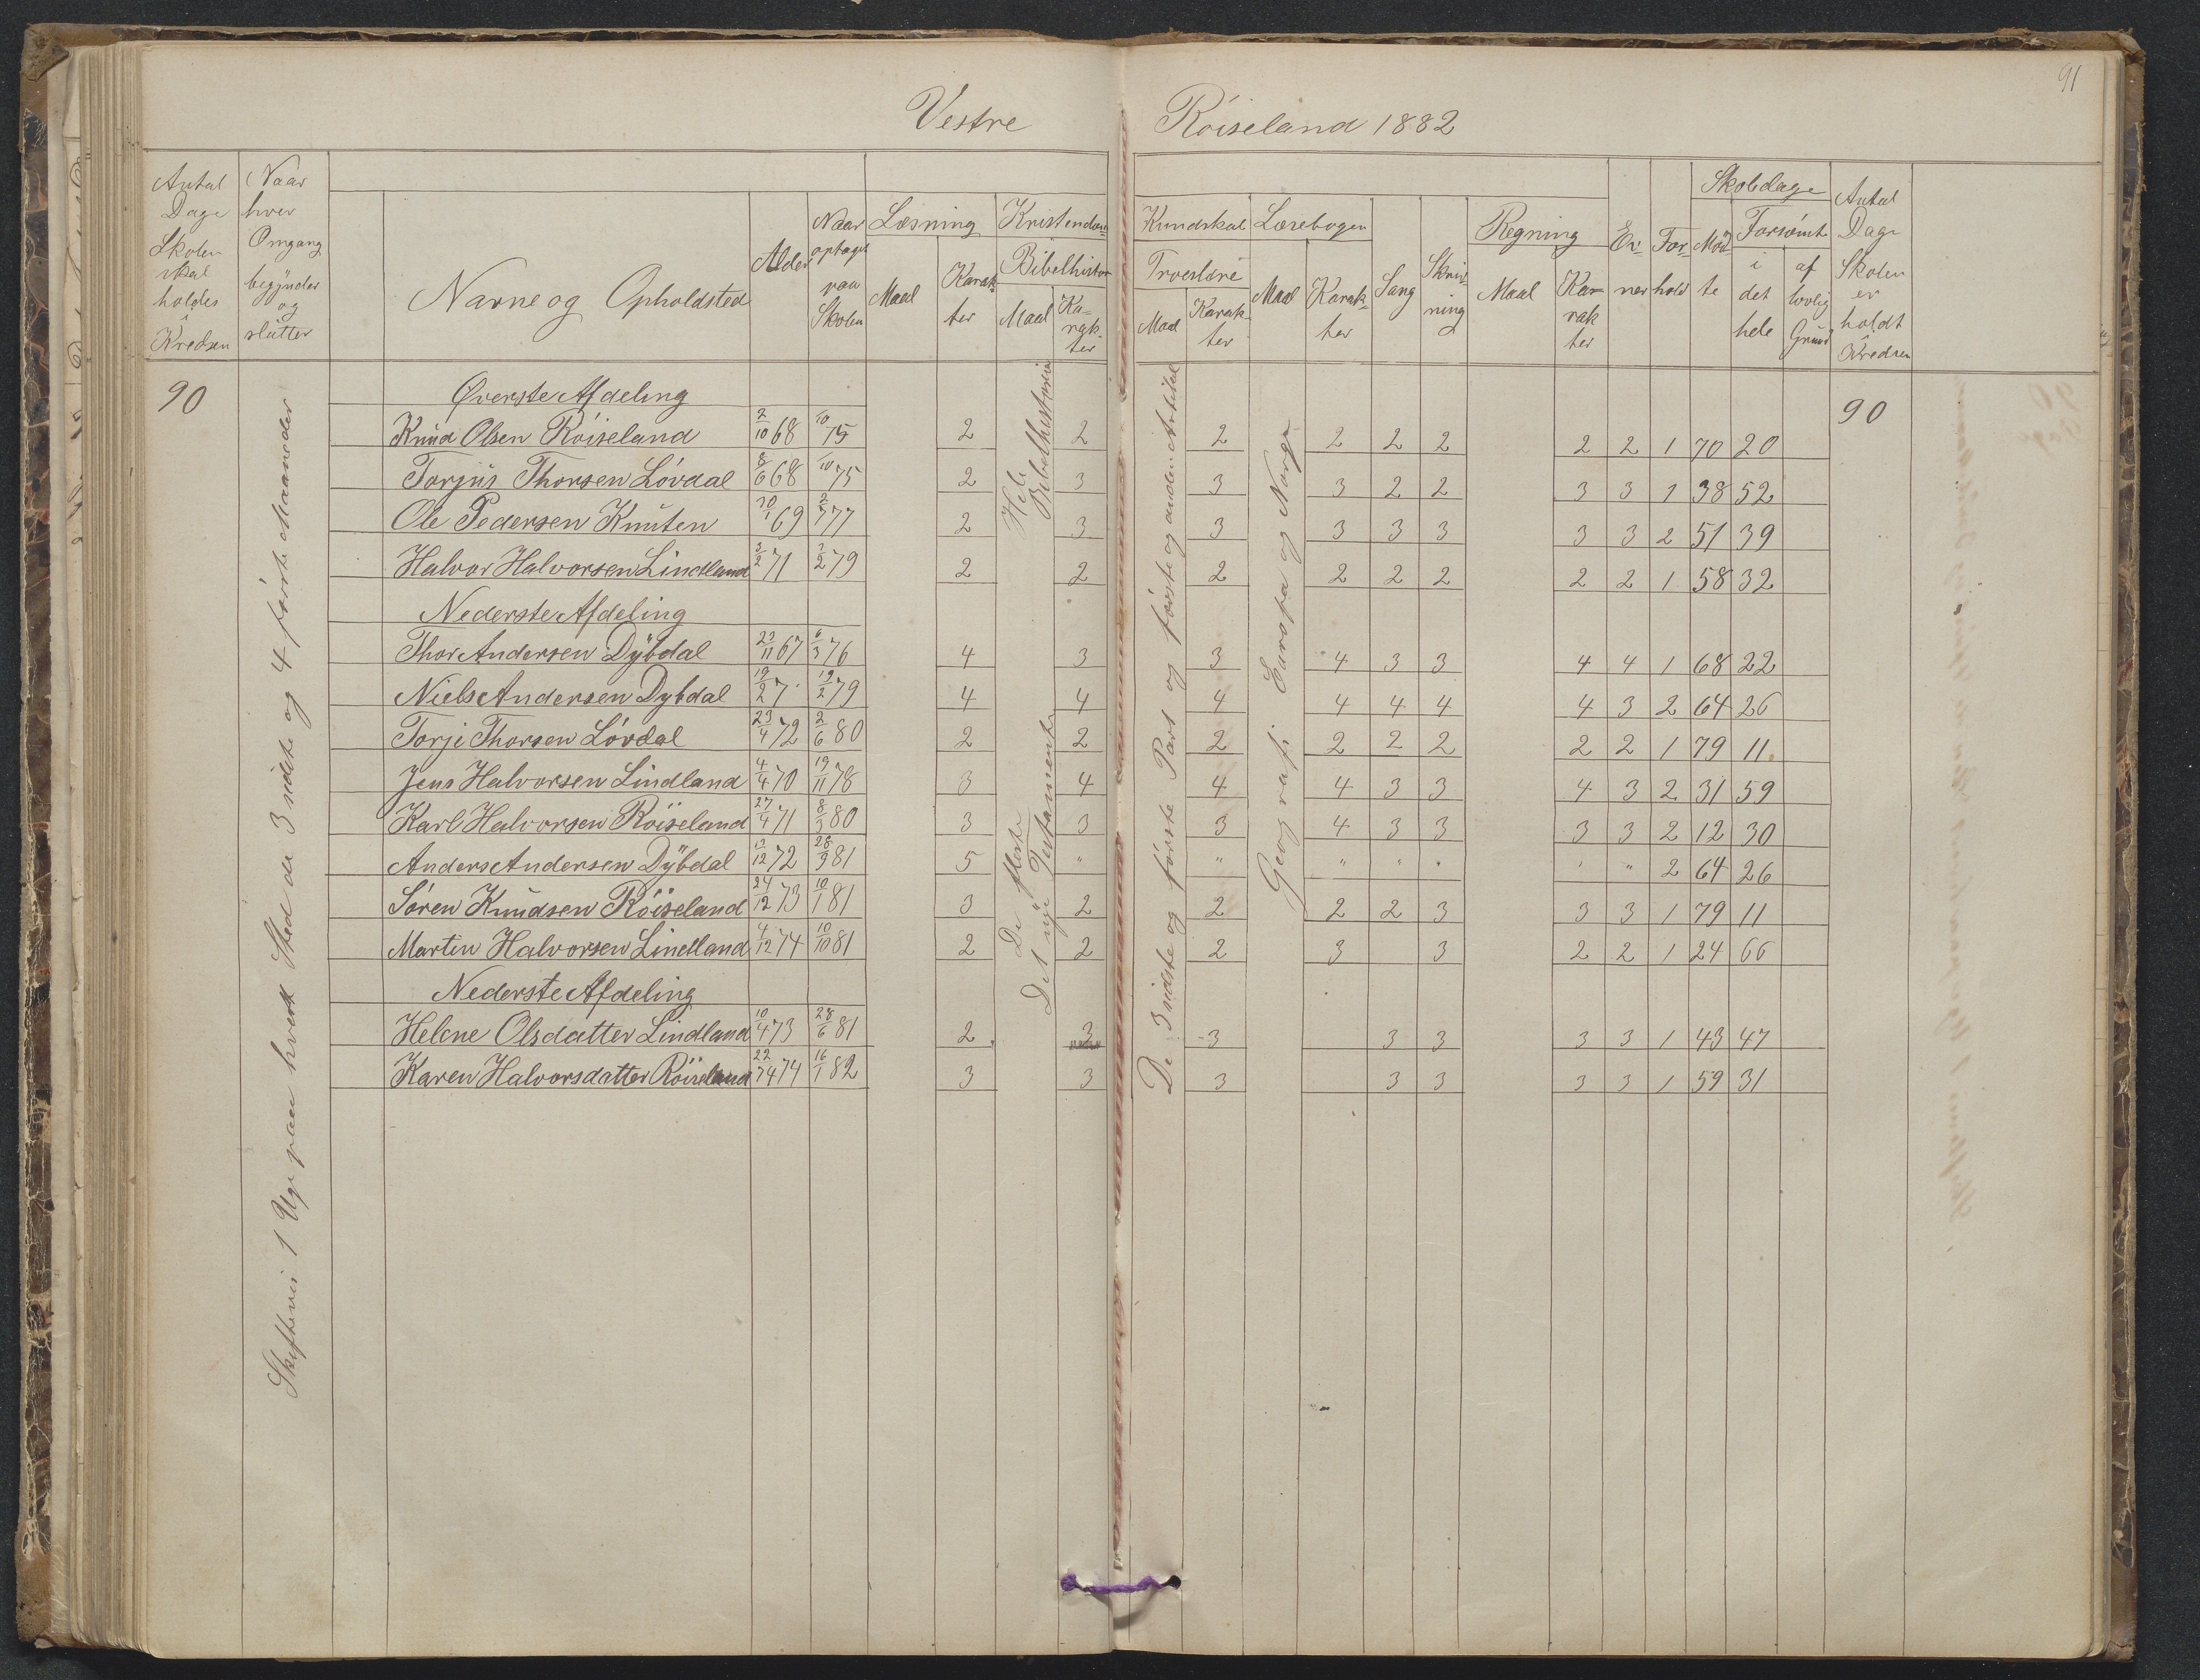 91
Vestre Röiseland 1882
Antal Dage Skolen skal holdes i Kredsen
Naar hver Omgang begynder og slutter
Navne og Opholdsted
Alder
Naar optaget paa Skolen
Læsning
Maal
Karakter
Kristendoms Kundskab
Bibelhistorie
Maal
Karakter
Troeslære
Maal
Karakter
Læsebogen
Maal
Karakter
Sang
Skrivning
Regning
Maal
Karakter
Evner
Forhold
Skoledage
Mødte
Forsömte
i det hele
af lovlig Grund
Antal Dage Skolen er holdt i Kredsen
90
90
Skiftevis 1 Uge paa hvert Sted de 3 sidste og 4 förste Maaneder
Hele Bibelhistorien
De fleste Det nye Testamente
De 3 sidste og förste Part og förste og anden Artikel
Geografi Europa og Norge
Øverste Afdeling
Knud Olsen Röiseland 2/10 68 /10 75 2 2 2 2 2 2 2 2 1 70 20
Torjus Thorsen Lövdal 8/6 68 /10 75 2 3 3 3 2 2 3 3 1 38 52
Ole Pedersen Knuten 30/1 69 2/7 77 2 3 3 3 3 3 3 3 2 51 39
Halvor Halvorsen Lindland 3/2 71 3/2 79 2 2 2 2 2 2 2 2 1 58 32
Nederste Afdeling
Thor Andersen Dybdal 29/11 67 6/3 76 4 3 3 4 3 3 4 4 1 68 22
Niels Andersen Dybdal 19/2 7 19/2 79 4 4 4 4 4 4 4 3 2 64 26
Torje Thorsen Lövdal 23/4 72 2/6 80 2 2 2 2 2 2 2 2 1 79 11
Jens Halvorsen Lindland 4/4 70 19/11 78 3 4 4 4 3 3 4 3 2 31 59
Karl Halvorsen Röiseland 27/4 71 8/3 80 3 3 3 4 3 3 3 3 2 12 30
Anders Andersen Dybdal 13/12 72 28/9 81 5 " " " " " " " 2 64 26
Sören Knudsen Röiseland 24/12 73 10/1 81 3 2 2 2 2 3 3 3 1 79 11
Martin Halvorsen Lindland 4/12 74 10/10 81 2 2 2 3 3 2 2 1 24 66
Nederste Afdeling
Helene Olsdatter Lindland 10/4 73 28/6 81 2 3 3 3 3 3 3 1 43 47
Karen Halvorsdatter Röiseland 22/ 74 16/1 82 3 3 3 3 3 3 3 1 59 31